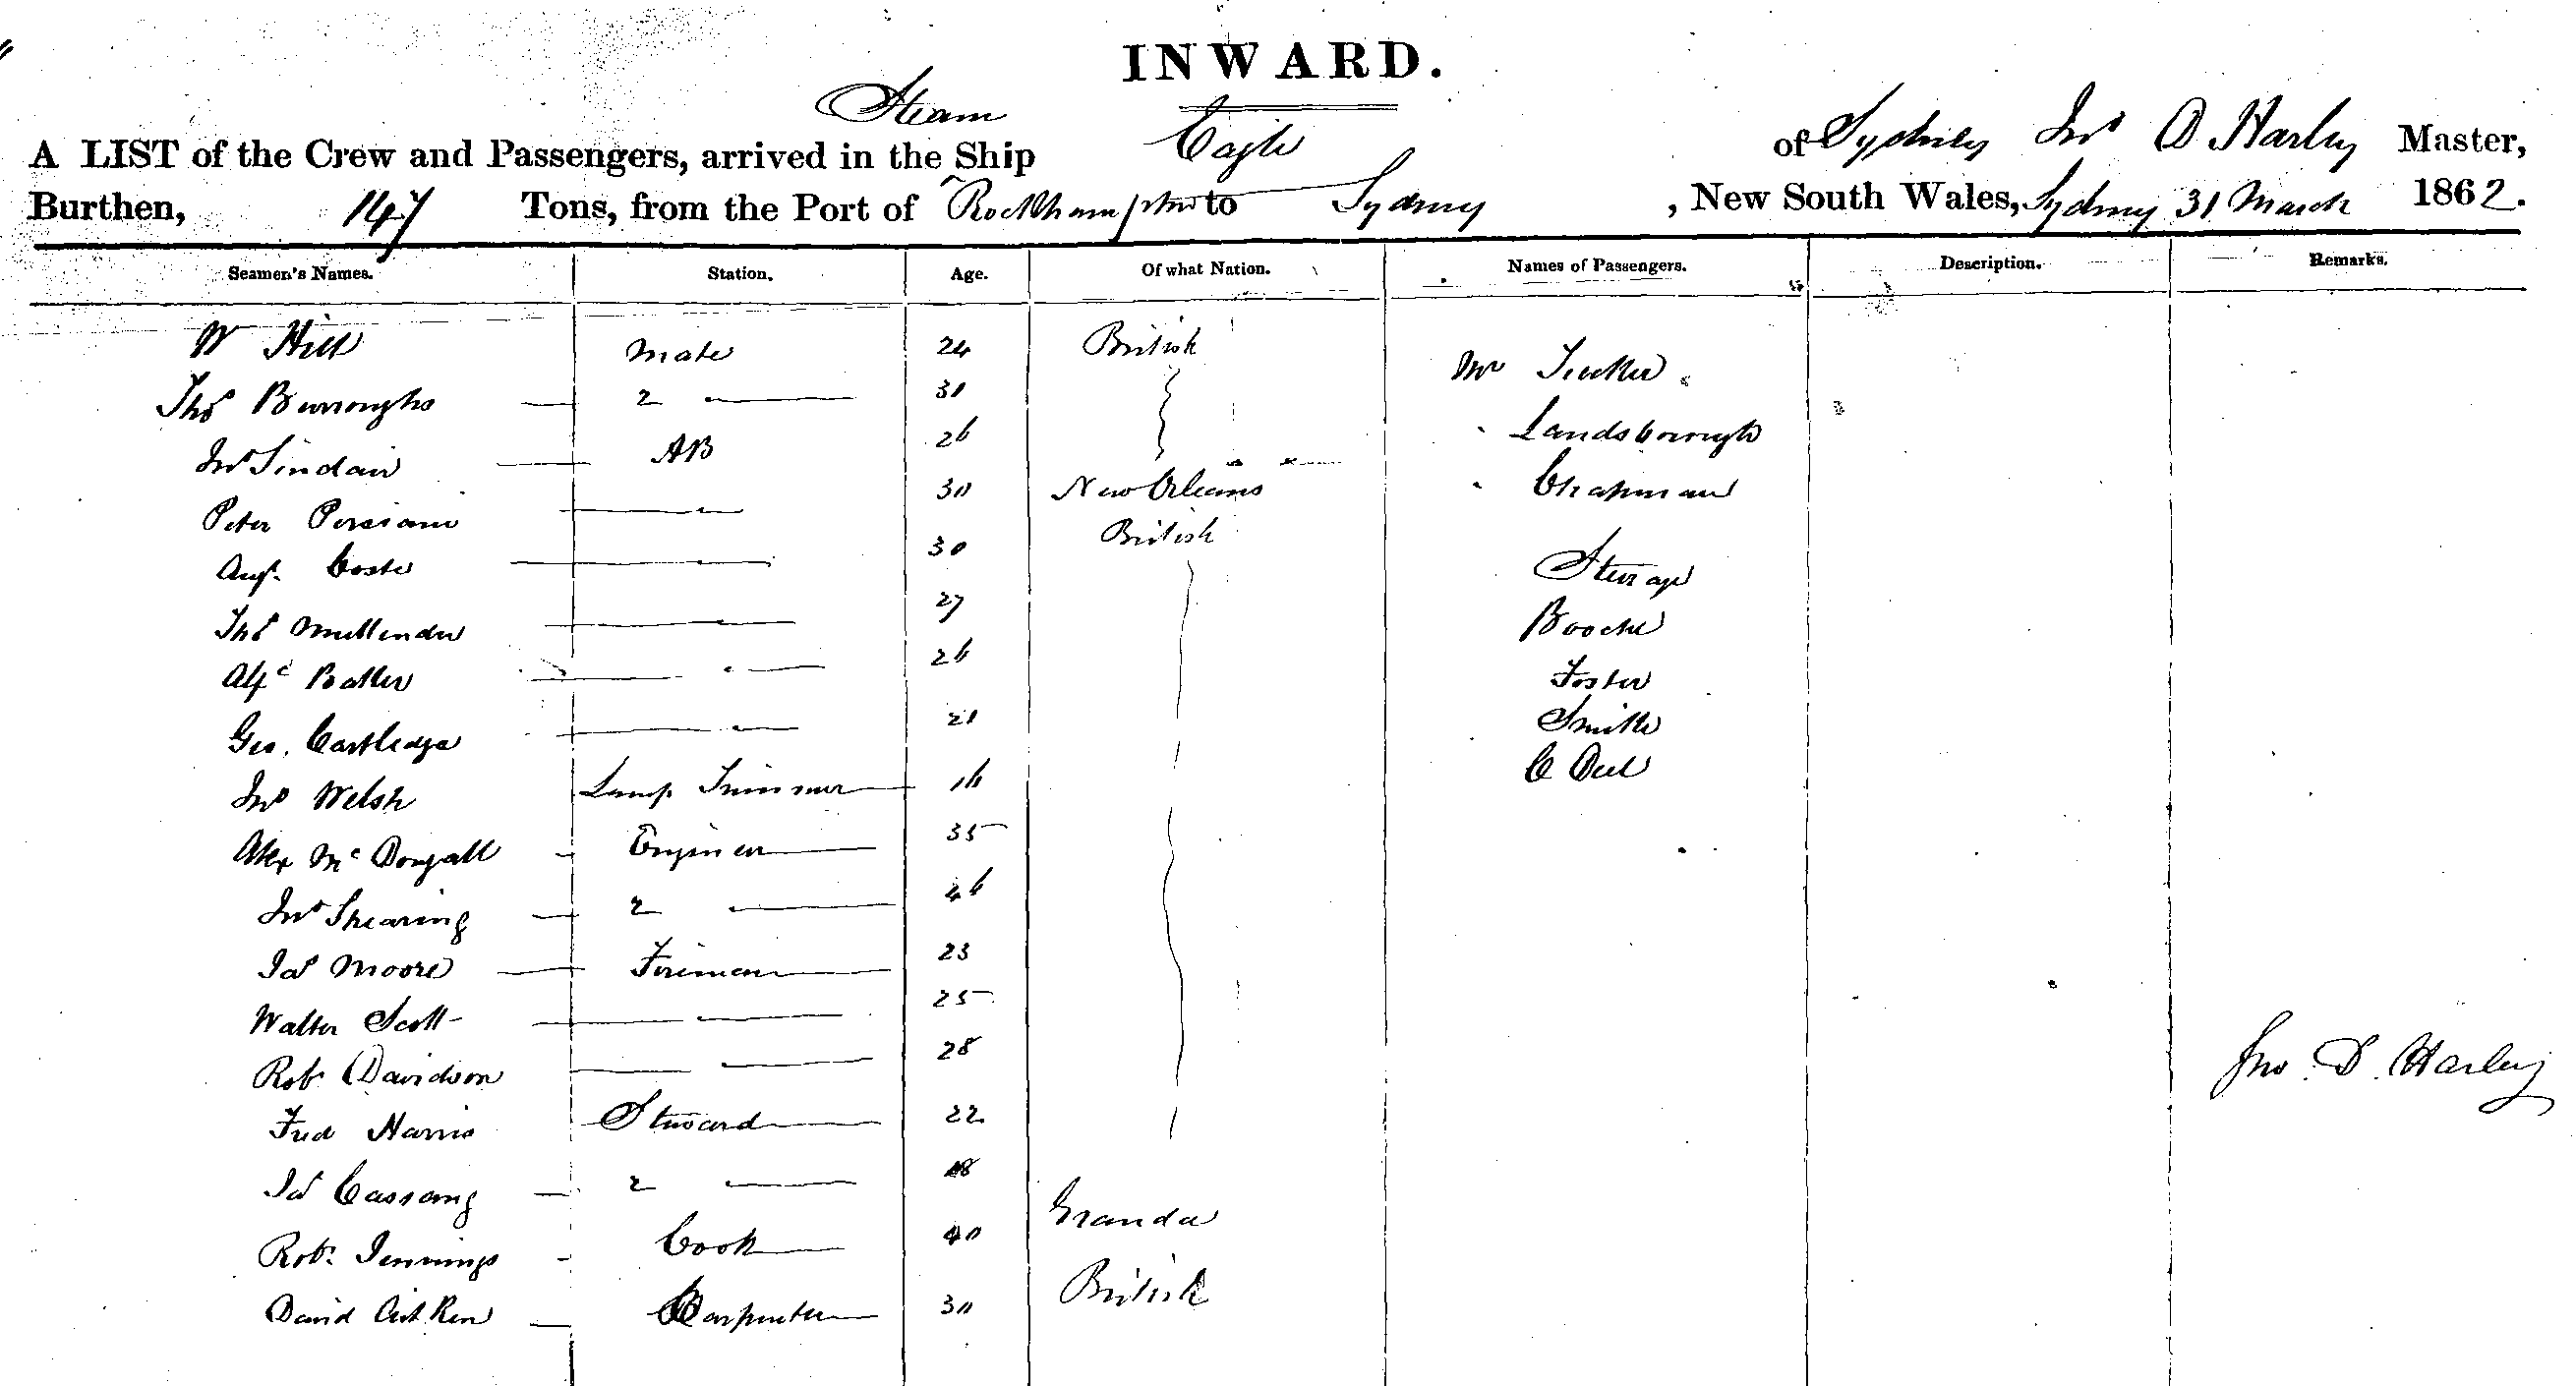 INWARD.
Steam
A LIST of the Crew and Passengers, arrived in the Ship Eagle of Sydney Jno D Harley Master,
Burthen, 147 Tons, from the Port of Rockhampton to Sydney, New South Wales, Sydney 31 March 1862.
Seamen's Names. Station. Age. Of what Nation. Names of Passengers. Description. Remarks.
W Hill Mate 24 British Mr Tucker
Thos Burroughs 2 30 Landsborough
Jno Sinclair AB 26 Chapman
Peter 30 New Orleans
Augs. Coste 30 British Steerage
Thos Mullender 27
Alfd 26 Foster
Geo. Cartledge 21 Smith
Jno Welsh Lamp Trimmer 16
Alex McDougall Engineer 35
Jno Shearing 2 46
Jas Moore Fireman 23
Walter Scott 25
Robt Davidson 28 Jno. D. Harley
Fred Harris Steward 22
Jas 2 18
Robt. Jennings Cook 40 Granda
David Aitken Carpenter 30 British